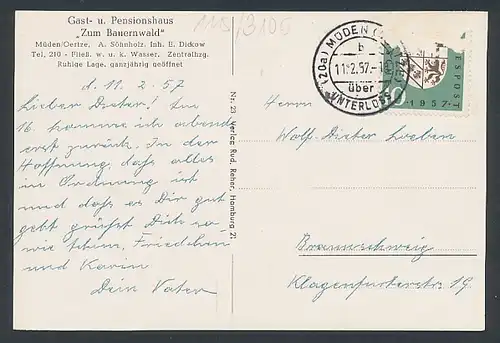 115/3100
Gast- u. Pensionshaus
„Zum Bauernwald"
Müden/Oertze, A. Söhnholz, Inh. E. Dickow
Tel. 210 - Fließ. w. u. k. Wasser, Zentralhzg.
Ruhige Lage, ganzjährig geöffnet
d. 11. 2. 57
Lieber Dieter! Am
16. komme ich abends
erst zurück. In der
Hoffnung, daß alles
in Ordnung ist
und daß es Dir gut
geht grüßt Dich so-
wie Friedchen
und Karin
Dein Vater
Nr. 23 Verlag Rud. Reher, Hamburg 21
(20a) MÜDEN
b
11.2.57.-1
über
UNTERLÜSS
ESPOST
1957
Herrn
Wolf-Dieter
Braunschweig
Klagenfurterstr. 19